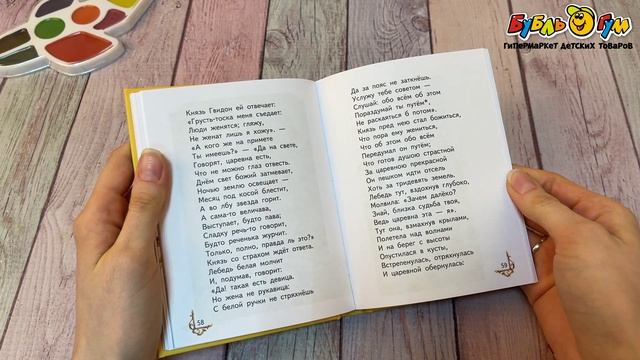 БУБЛЬ ГУМ
ГИПЕРМАРКЕТ ДЕТСКИХ ТОВАРОВ
Князь Гвидон ей отвечает:
«Грусть-тоска меня съедает:
Люди женятся; гляжу,
Не женат лишь я хожу». —
«А кого же на примете
Ты имеешь?» — «Да на свете,
Говорят, царевна есть,
Что не можно глаз отвесть.
Днём свет божий затмевает,
Ночью землю освещает —
Месяц под косой блестит,
А во лбу звезда горит.
А сама-то величава,
Выступает, будто пава;
Сладку речь-то говорит,
Будто реченька журчит.
Только, полно, правда ль это?»
Князь со страхом ждёт ответа.
Лебедь белая молчит
И, подумав, говорит:
«Да! такая есть девица.
Но жена не рукавица:
С белой ручки не стряхнёшь
58
Да за пояс не заткнёшь.
Услужу тебе советом —
Слушай: обо всём об этом
Пораздумай ты путём*,
Не раскаяться б потом».
Князь пред нею стал божиться,
Что пора ему жениться,
Что об этом обо всём
Передумал он путём;
Что готов душою страстной
За царевною прекрасной
Он пешком идти отсель
Хоть за тридевять земель.
Лебедь тут, вздохнув глубоко,
Молвила: «Зачем далёко?
Знай, близка судьба твоя,
Ведь царевна эта — я».
Тут она, взмахнув крылами,
Полетела над волнами
И на берег с высоты
Опустилася в кусты,
Встрепенулась, отряхнулась
И царевной обернулась:
59